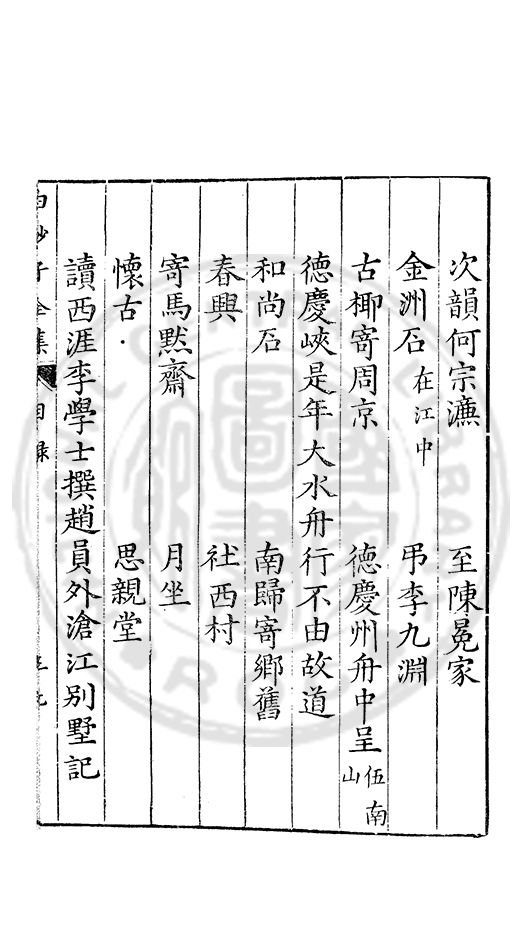 次韻何宗濂　至陳冕家
金洲石在江中　弔李九淵
古榔寄周京　德慶州舟中呈伍南山
德慶峽是年大水舟行不由故道
和尚石　南歸寄鄉舊
春興　社西村
寄馬默齋　月坐
懷古　思親堂
讀西涯李學士撰趙員外滄江別墅記
白沙子全集　目錄